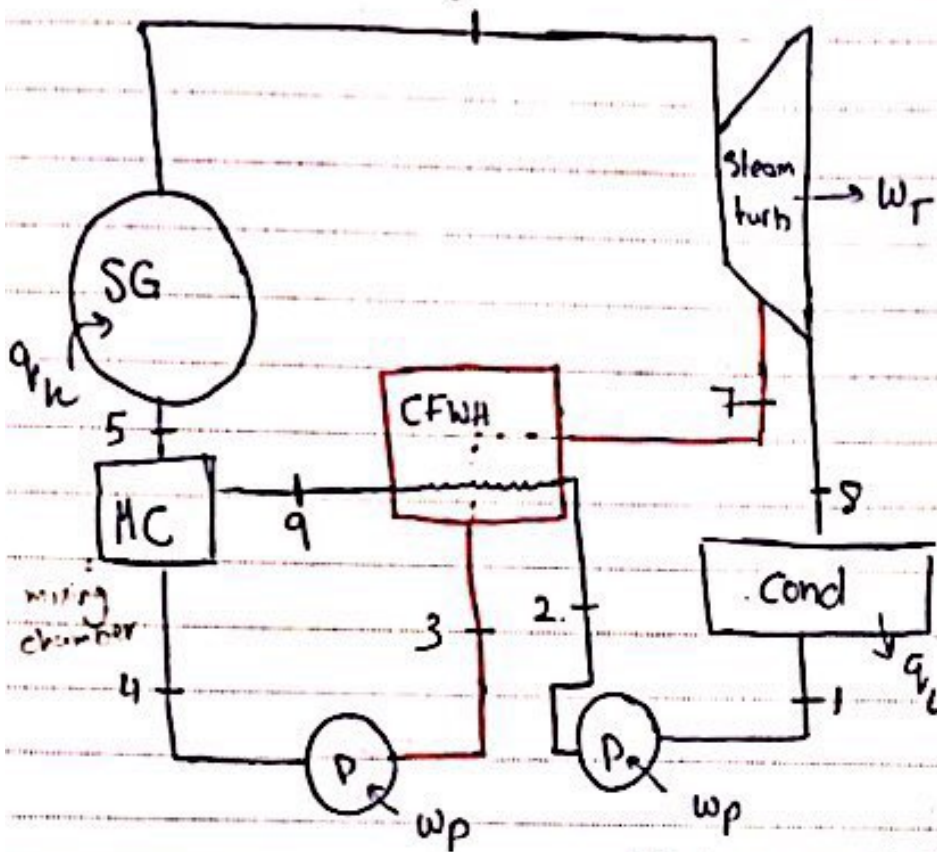 Steam
turb
WT
SG
qh
CFWH
7
5
MC
9
8
mixing
chamber
3
2.
Cond
qL
4
1
P
P
wp
wp